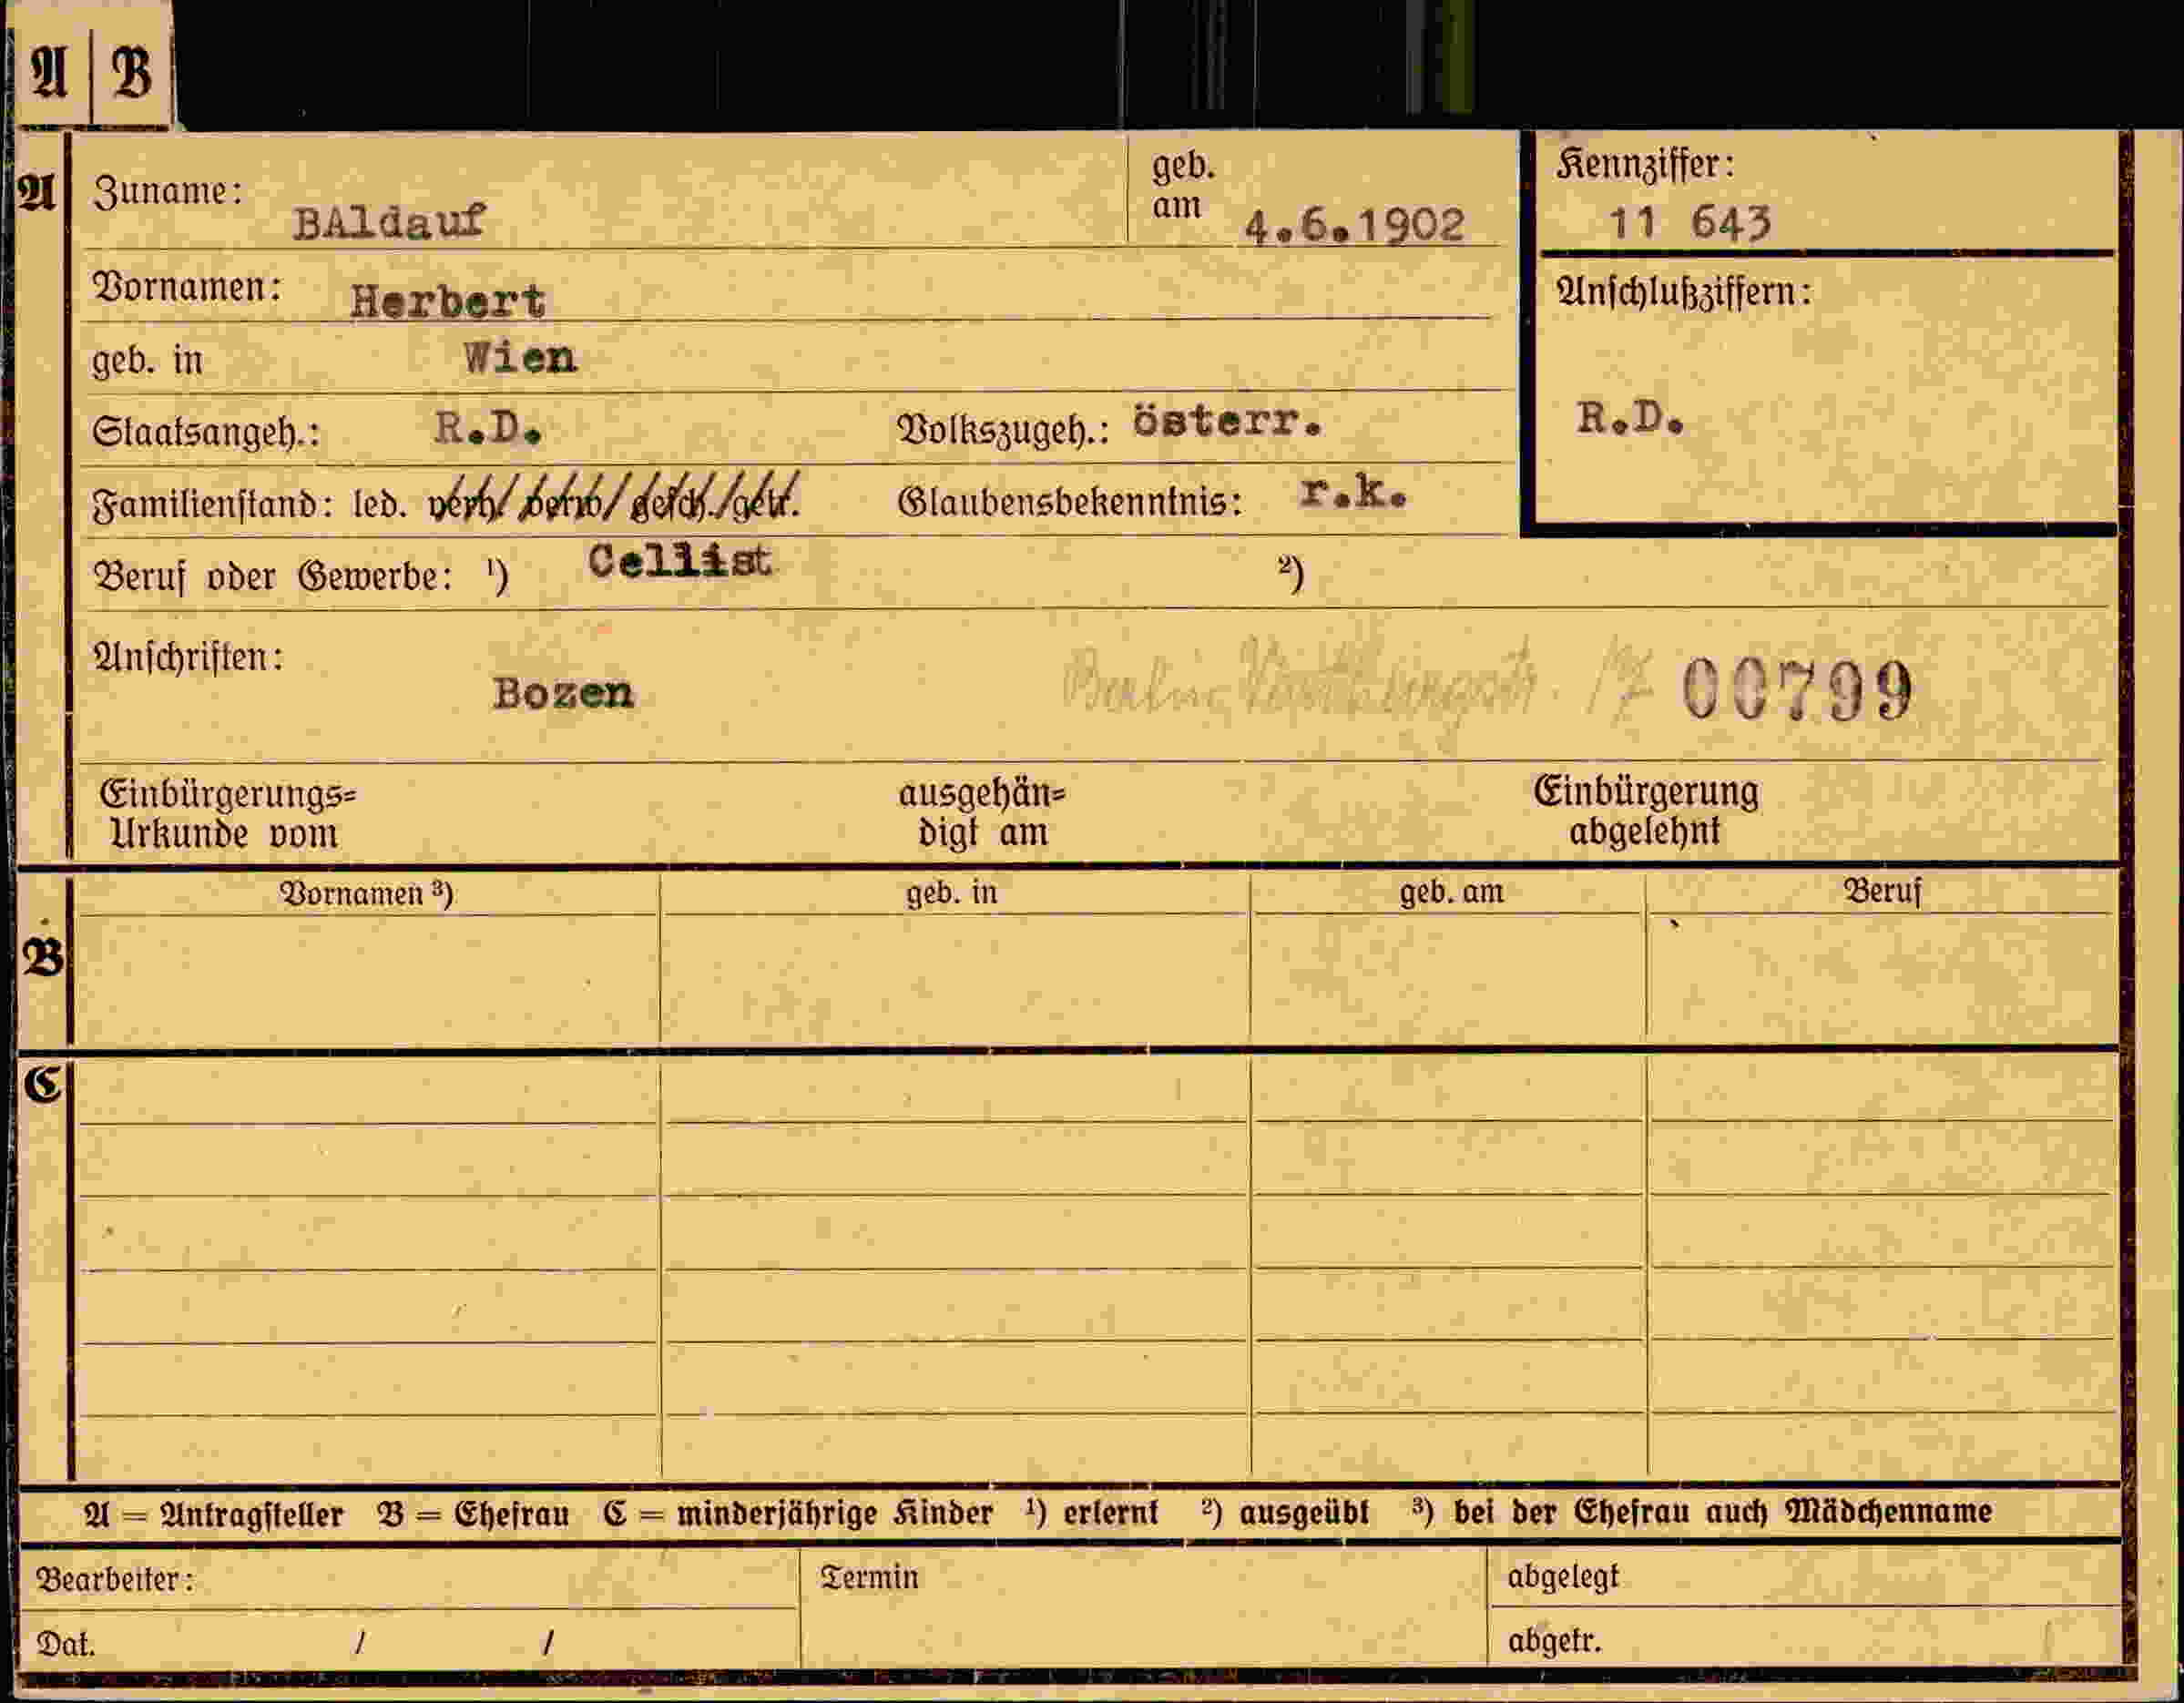 A B
A Zuname: BAldauf geb. am 4.6.1902 Kennziffer: 11 643
Vornamen: Herbert Anschlußziffern:
geb. in Wien
Staatsangeh.: R.D. Volkszugeh.: österr. R.D.
Familienstand: led. verh/ verw/ gesch./getr. Glaubensbekenntnis: r.k.
Beruf oder Gewerbe: ¹) Cellist ²)
Anschriften: Bozen Berlin 17 00799
Einbürgerungs= ausgehän= Einbürgerung
Urkunde vom digt am abgelehnt
Vornamen ³) geb. in geb. am Beruf
B
C
A = Antragsteller B = Ehefrau C = minderjährige Kinder ¹) erlernt ²) ausgeübt ³) bei der Ehefrau auch Mädchenname
Bearbeiter: Termin abgelegt
Dat. / / abgetr.